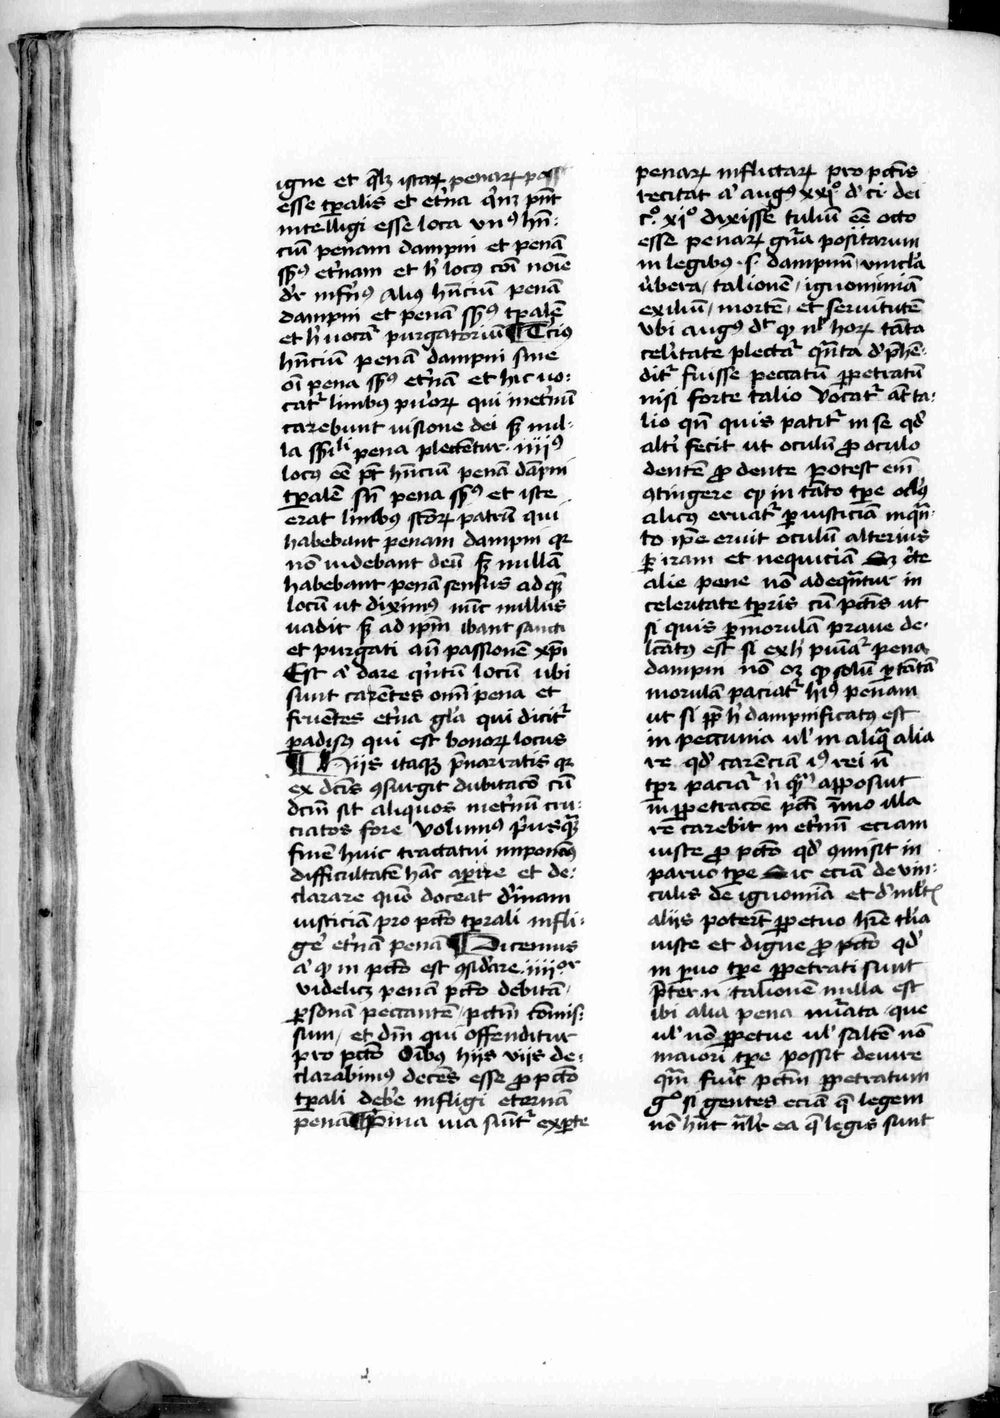 igne et ql̃z istaꝝ penaꝝ poss
esse tp̃alis et et̾na qñz pñt
intelligi esse loca vnꝰ hñ-
ciũ penam dampni et penã
sñsꝰ et̾nam et h̾ locꝰ cõi noĩe
dr̃ infñꝰ Aliꝰ hñciũ penã
dampni et penã sñsꝰ tp̃alẽ
et h̾ uocat̾ purgatoriũ ¶ Tciꝰ
hñciũ penã dampni sine
oĩ pena sñsꝰ et̾nã et hic uo-
cat̾ limbꝰ pu̾oꝝ qui inet̾nũ
carebunt uisione dei sꝫ nul-
la sñsili pena plectentur. iiiiꝰ
locꝰ eẽ pt̃ hñciũ penã dãpni
tp̃alẽ sñ pena sñsꝰ et iste
erat limbus scõꝝ patrũ qui
habebant penam dampni qr
nõ uidebant deũ sꝫ nullã
habebant penã sensus ad quẽ
locũ ut diximꝰ nũc nullus
uadit sꝫ ad ip̃m ibant sancti
et purgati añ passionẽ xp̃i
Est a̾ dare qñtũ locũ ubi
sunt carẽtes om̃i pena et
fruẽtes et̾na gl̃a qui dicit̾
ꝑadisꝰ qui est bonoꝝ locus
¶ Hiis itaqꝫ p̃narratis qr
ex dc̃is ꝯsurgit dubitacõ cũ
dcm̃ sit aliquos inet̾nũ cru-
ciatos fore volumꝰ p̾usqꝫ
finẽ huic tractatui imponamꝰ
difficultatẽ hãc aperire et de-
clarare quõ doceat d̾iuinam
iusticiã pro pcc̃to tp̃rali infli-
ge̾ et̾nã penã ¶ Dicemus
a̾ ꝙ in pcc̃to est ꝯsid̾are .iiiiᵒʳ
videlicꝫ penã pcc̃to debitã,
ꝑsonã peccantẽ, pcc̃tm̃ cõmis-
sum, et dm̃ qui offenditur
pro pcc̃to Oĩbus hiis viis de-
clarabimꝰ decẽs esse ꝓ pcc̃to
tp̃rali debe̾ infligi eternã
penã ¶ Prima uia sumit̾ exparte
penaꝝ inflictaꝝ pro pcc̃tis
recitat a̾ augꝰ xxiᵒ d̾ ci. dei
cᵒ. xiᵒ dixisse tuliũ eẽ octo
esse penaꝝ gñra positarum
in legibꝰ .s. dampnũ, vincl̾a
u̾bera, talionẽ, ignominiã
exiliũ, mortẽ, et seruitutẽ
Vbi augꝰ dt̾ ꝙ nl̾ hoꝝ tãta
cel̾itate plectat̾ quãta d̾p̃hẽ-
dit̾ fuisse peccatũ ꝑpetratũ
nisi forte talio Vocat̾ añ ta-
lio qñ quis patit̾ in se qd̾
alt̾i fecit ut oculũ ꝓ oculo
dentẽ ꝓ dente Potest em̃
ꝯtingere ꝙ in tãto tp̃e oclꝰ
alicꝰ eruat̾ ꝑ iusticiã inquã-
to ip̃e eruit oculũ alterius
ꝑ iram et nequiciã Sꝫ c̾te
alie pene nõ adequãtur in
celeritate tp̃ris cũ pcc̃tis ut
si quis ꝑ morulã praue de-
lc̃atꝰ est si ex h̾ puniat̾ pena
dampni nõ oꝫ ꝙ solũ ꝑ tãtã
morulã paciat̾ h̾iꝰ penam
ut si ꝓp̃ h̾ dampnificatꝰ est
in peccunia ul̾ in aliqua alia
re qd̾ carẽciam iꝰ rei ñ
tpr̃ paciat̾ ñ qñ apposuit
in ꝑpetracõe pcc̃ti ĩmo illa
rẽ carebit in et̾nũ eciam
iuste ꝓ pcc̃to qd̾ ꝯmisit in
paruo tp̃e Sic eciam de vin-
culis de ignomĩa et d̾ mlt̾
aliis poterit ꝑpetuo hr̃e tl̾ia
iuste et digne ꝓ pcc̃to qd̾
in ꝑuo tp̃e ꝑpetrati sunt
pret̾ n̾ talionẽ nulla est
ibi alia pena nũ̾ata, que
ul̾ nõ ꝑpetue ul̾ saltẽ nõ
maiori tp̃e possit deuire
quã fu̾it pcc̃tm ꝑpetratum
gᵒ si gentes eciã q̃ legem
nõ hñt nãlr̾ ea q̃ legis sunt